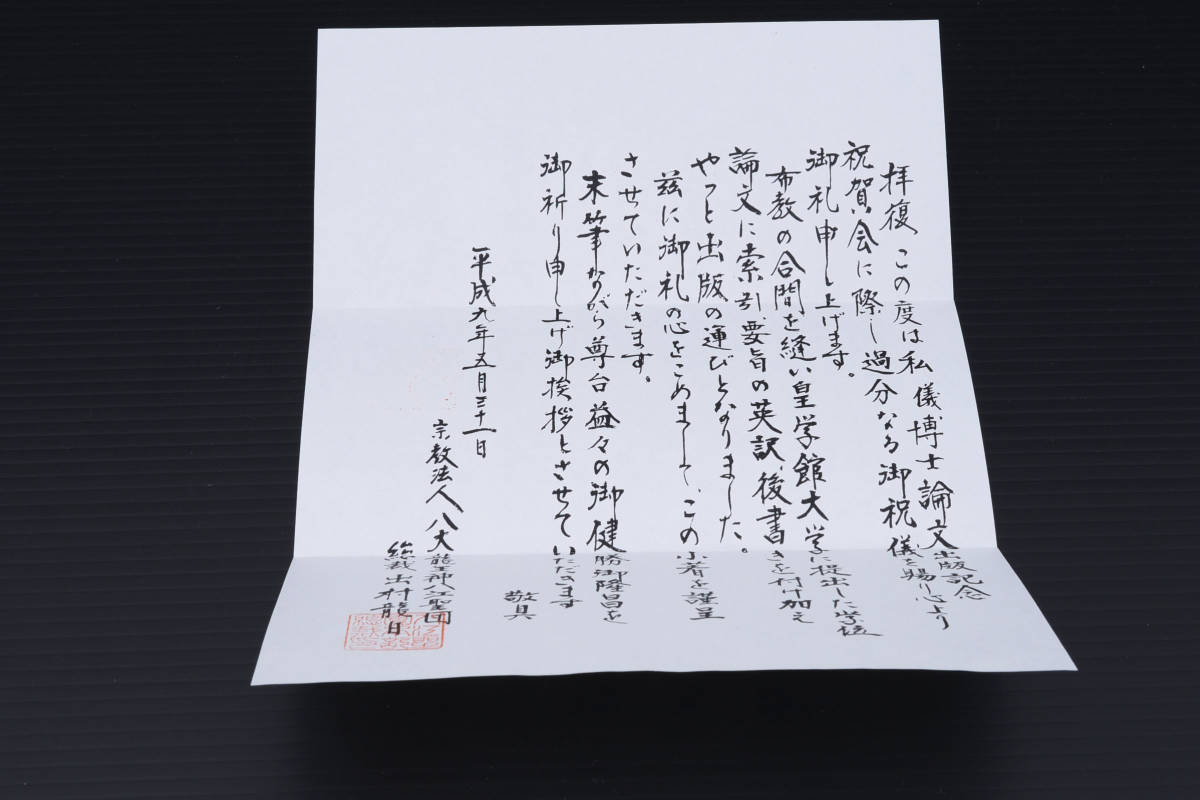 拝復 この度は私儀博士論文出版記念
祝賀会に際し過分なる御祝儀を賜り心より
御礼申し上げます。
布教の合間を縫い皇学館大学に提出した学位
論文に索引、要旨の英訳、後書きを付け加え
やっと出版の運びとなりました。
茲に御礼の心をこめまして、この小著を謹呈
させていただきます。
末筆ながら尊台益々の御健勝御隆昌を
御祈り申し上げ御挨拶とさせていただきます
敬具
平成九年五月三十一日
宗教法人八大龍王神八江聖団
総裁 出村龍日